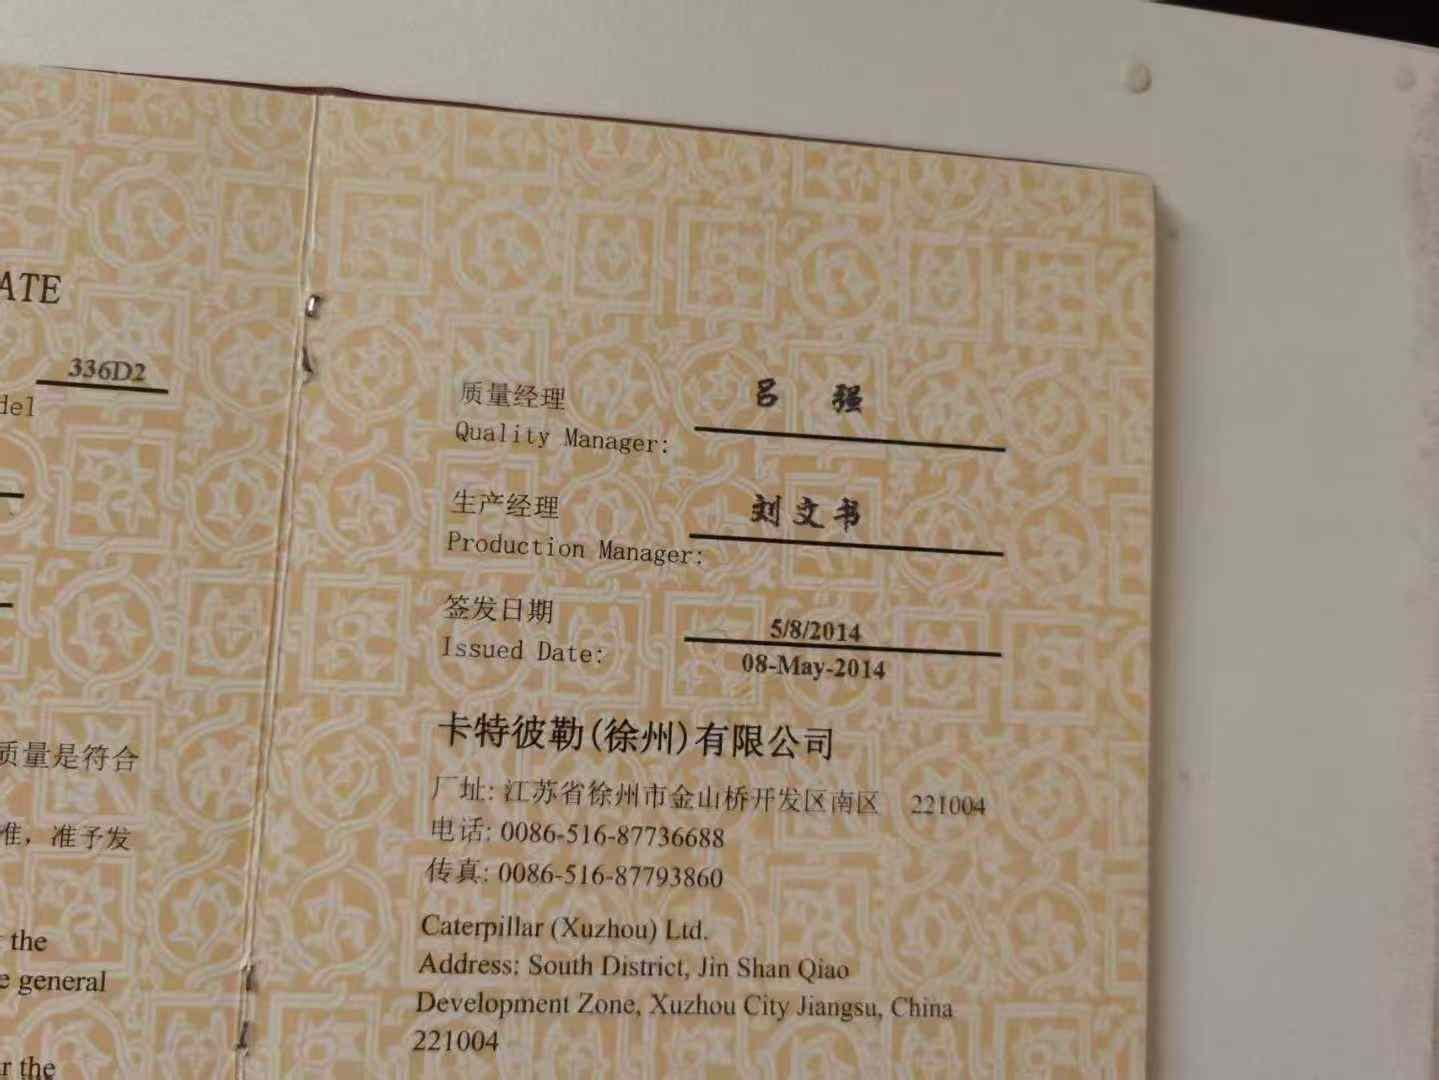 ATE
336D2
del
质量是符合
准，准予发
the
e general
r the
质量经理 吕 强
Quality Manager:
生产经理 刘文书
Production Manager:
签发日期 5/8/2014
Issued Date: 08-May-2014
卡特彼勒(徐州)有限公司
厂址: 江苏省徐州市金山桥开发区南区 221004
电话: 0086-516-87736688
传真: 0086-516-87793860
Caterpillar (Xuzhou) Ltd.
Address: South District, Jin Shan Qiao
Development Zone, Xuzhou City Jiangsu, China
221004